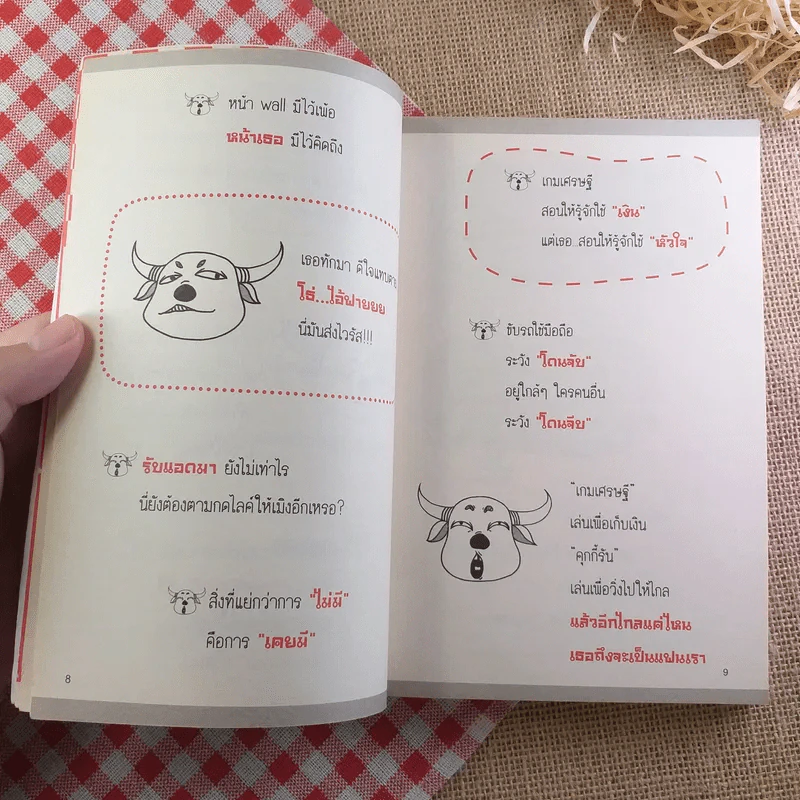 หน้า wall มีไว้เพ้อ
หน้าเธอ มีไว้คิดถึง
เธอทักมา ดีใจแทบตาย
โธ่...ไอ้ฟายยย
นี่มันส่งไวรัส!!!
รับแอดมา ยังไม่เท่าไร
นี่ยังต้องตามกดไลค์ให้เมิงอีกเหรอ?
สิ่งที่แย่กว่าการ "ไม่มี"
คือการ "เคยมี"
8
เกมเศรษฐี
สอนให้รู้จักใช้ "เงิน"
แต่เธอ...สอนให้รู้จักใช้ "หัวใจ"
ขับรถใช้มือถือ
ระวัง "โดนจับ"
อยู่ใกล้ๆ ใครคนอื่น
ระวัง "โดนจีบ"
"เกมเศรษฐี"
เล่นเพื่อเก็บเงิน
"คุกกี้รัน"
เล่นเพื่อวิ่งไปให้ไกล
แล้วอีกไกลแค่ไหน
เธอถึงจะเป็นแฟนเรา
9